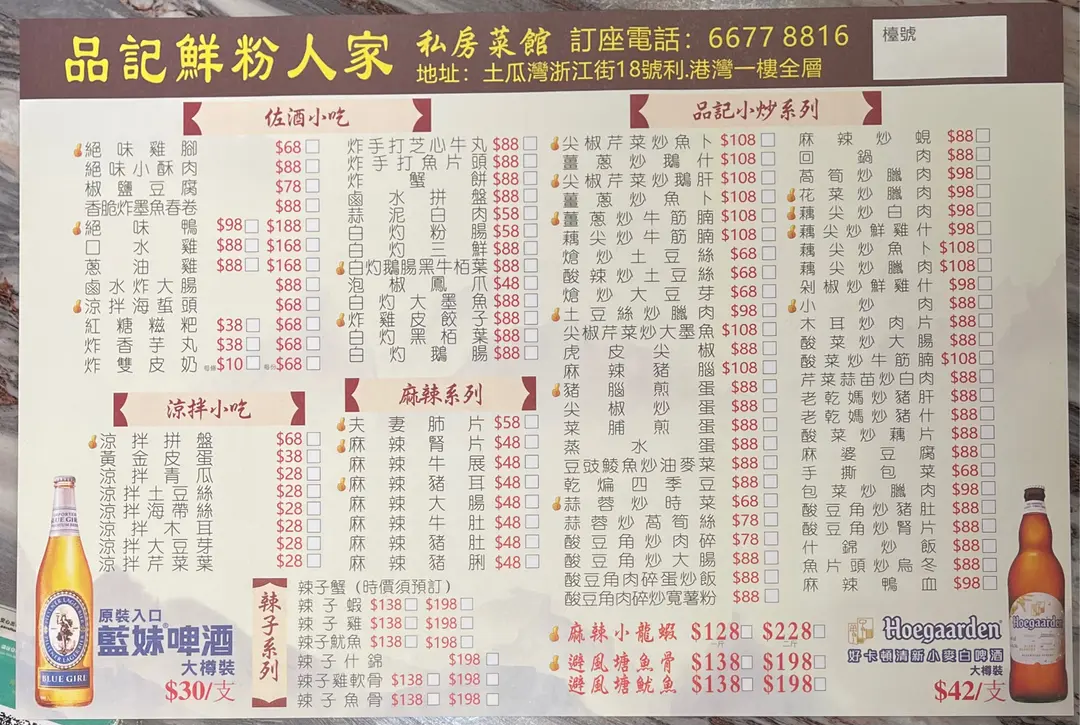 品記鮮粉人家 私房菜館 訂座電話：6677 8816
地址：土瓜灣浙江街18號利.港灣一樓全層
檯號
佐酒小吃
絕味雞腳 $68
絕味小酥肉 $88
椒鹽豆腐 $78
香脆炸墨魚春卷 $88
絕味鴨 $98 $188
口水雞 $88 $168
蔥油雞 $88 $168
鹵水炸大腸 $88
涼拌海蜇頭 $68
紅糖糍粑 $38 $68
炸香芋丸 $38 $68
炸雙皮奶 每條$10 每份$68
炸手打芝心牛丸 $88
炸手打魚片頭 $88
炸蟹餅 $88
鹵水拼盤 $88
蒜泥白肉 $58
白灼粉腸 $58
白灼三鮮 $88
白灼鵝腸黑牛栢葉 $88
泡椒鳳爪 $48
白灼大墨魚 $88
炸雞皮餃子 $88
白灼黑栢葉 $88
白灼鵝腸 $88
涼拌小吃
涼拌拼盤 $68
黃金皮蛋 $38
涼拌青瓜 $28
涼拌土豆絲 $28
涼拌海帶絲 $28
涼拌木耳 $28
涼拌大豆芽 $28
涼拌芹菜葉 $28
麻辣系列
夫妻肺片 $58
麻辣腎片 $48
麻辣牛展 $48
麻辣豬耳 $48
麻辣大腸 $48
麻辣牛肚 $48
麻辣豬肚 $48
麻辣豬脷 $48
辣子系列
辣子蟹(時價須預訂)
辣子蝦 $138 $198
辣子雞 $138 $198
辣子魷魚 $138 $198
辣子什錦 $198
辣子雞軟骨 $138 $198
辣子魚骨 $138 $198
品記小炒系列
尖椒芹菜炒魚卜 $108
薑蔥炒鵝什 $108
尖椒芹菜炒鵝肝 $108
薑蔥炒魚卜 $108
薑蔥炒牛筋腩 $108
藕尖炒牛筋腩 $108
熗炒土豆絲 $68
酸辣炒土豆絲 $68
熗炒大豆芽 $68
土豆絲炒臘肉 $98
尖椒芹菜炒大墨魚 $108
虎皮尖椒 $88
麻辣豬腦 $108
豬腦煎蛋 $88
尖椒炒蛋 $88
菜脯煎蛋 $88
蒸水蛋 $88
豆豉鯪魚炒油麥菜 $88
乾煸四季豆 $88
蒜蓉炒時菜 $68
蒜蓉炒萵筍絲 $78
酸豆角炒肉碎 $78
酸豆角炒大腸 $88
酸豆角肉碎蛋炒飯 $88
酸豆角肉碎炒寬薯粉 $88
麻辣炒蜆 $88
回鍋肉 $88
萵筍炒臘肉 $98
花菜炒臘肉 $98
藕尖炒白肉 $98
藕尖炒鮮雞什 $98
藕尖炒魚卜 $108
藕尖炒臘肉 $108
剁椒炒鮮雞什 $98
小炒肉 $88
木耳炒肉片 $88
酸菜炒大腸 $88
酸菜炒牛筋腩 $108
芹菜蒜苗炒白肉 $88
老乾媽炒豬肝 $88
老乾媽炒豬什 $88
酸菜炒藕片 $88
麻婆豆腐 $88
手撕包菜 $68
包菜炒臘肉 $98
酸豆角炒豬肚 $88
酸豆角炒腎片 $88
什錦炒飯 $88
魚片頭炒烏冬 $88
麻辣鴨血 $98
麻辣小龍蝦 $128 $228
一斤 二斤
避風塘魚骨 $138 $198
避風塘魷魚 $138 $198
BLUE GIRL
原裝入口
藍妹啤酒
大樽裝
$30/支
BLUE GIRL
Hoegaarden
好卡頓清新小麥白啤酒
大樽裝
$42/支
Hoegaarden